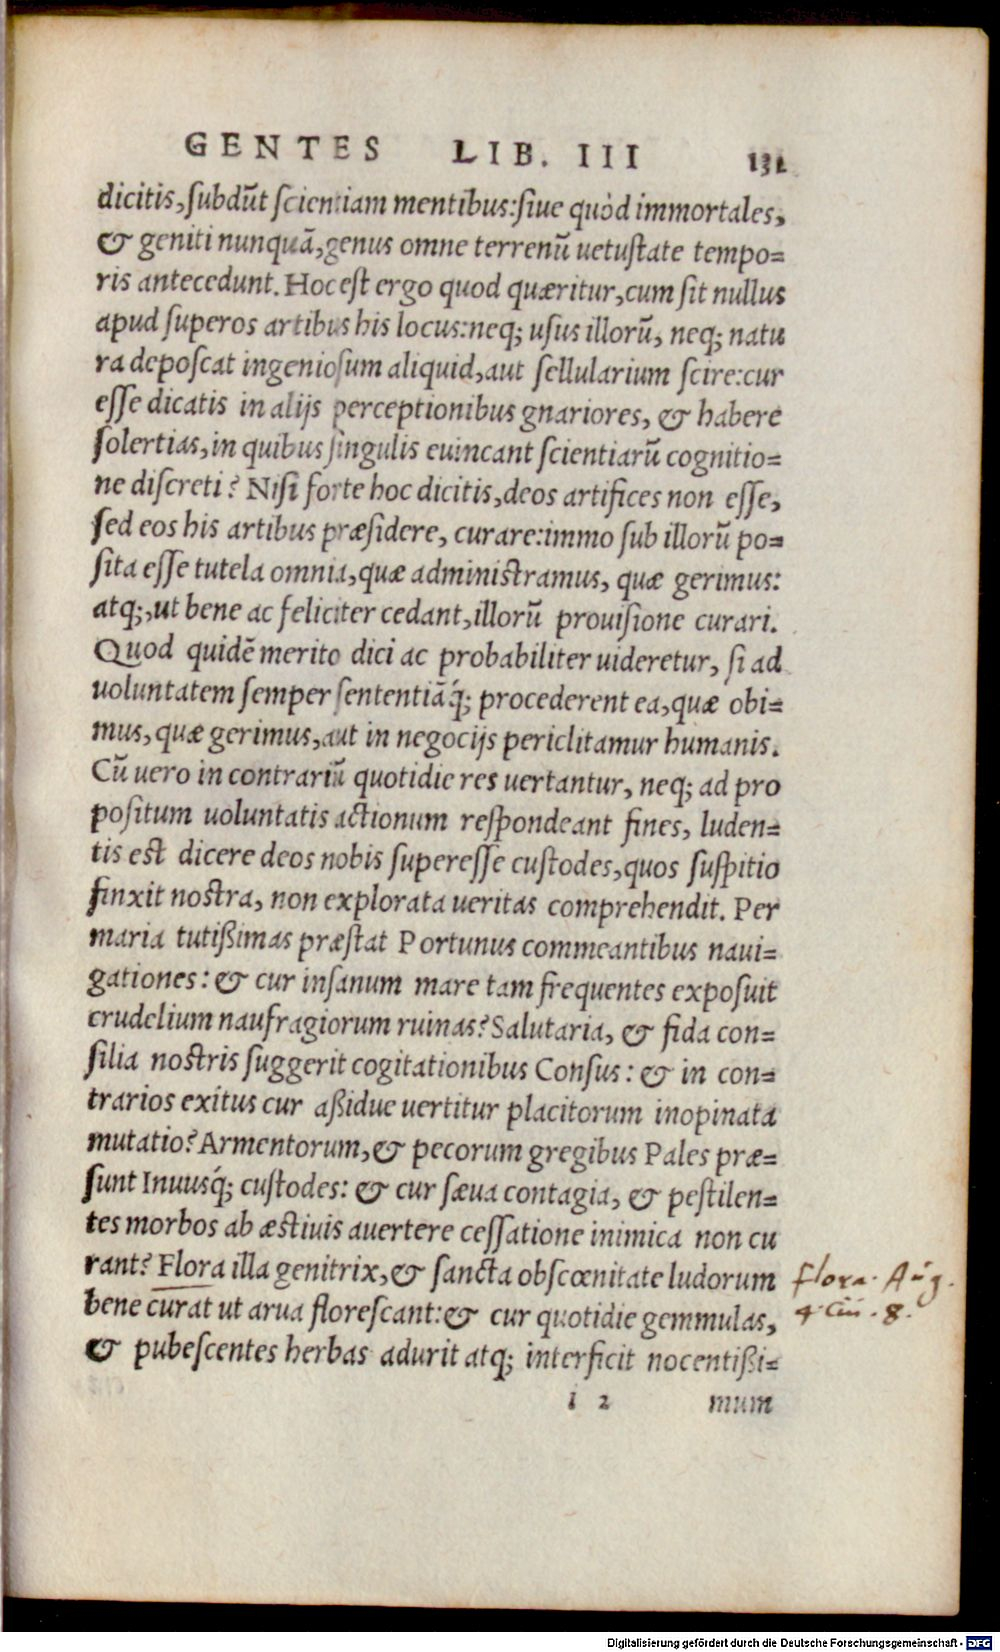 GENTES LIB. III 131
dicitis, subdūt scientiam mentibus: siue quòd immortales,
& geniti nunquā, genus omne terrenū uetustate tempo=
ris antecedunt. Hoc est ergo quod quæritur, cum sit nullus
apud superos artibus his locus: neq; usus illorū, neq; natu
ra deposcat ingeniosum aliquid, aut sellularium scire: cur
esse dicatis in alijs perceptionibus gnariores, & habere
solertias, in quibus singulis euincant scientiarū cognitio=
ne discreti? Nisi forte hoc dicitis, deos artifices non esse,
sed eos his artibus præsidere, curare: immo sub illorū po=
sita esse tutela omnia, quæ administramus, quæ gerimus:
atq;, ut bene ac feliciter cedant, illorū prouisione curari.
Quod quidē merito dici ac probabiliter uideretur, si ad
uoluntatem semper sententiāq́; procederent ea, quæ obi=
mus, quæ gerimus, aut in negocijs periclitamur humanis.
Cū uero in contrariū quotidie res uertantur, neq; ad pro
positum uoluntatis actionum respondeant fines, luden=
tis est dicere deos nobis superesse custodes, quos suspitio
finxit nostra, non explorata ueritas comprehendit. Per
maria tutißimas præstat Portunus commeantibus naui=
gationes: & cur insanum mare tam frequentes exposuit
crudelium naufragiorum ruinas? Salutaria, & fida con=
silia nostris suggerit cogitationibus Consus: & in con=
trarios exitus cur aßidue uertitur placitorum inopinata
mutatio? Armentorum, & pecorum gregibus Pales præ=
sunt Inuusq́; custodes: & cur sæua contagia, & pestilen=
tes morbos ab æstiuis auertere cessatione inimica non cu
rant? Flora illa genitrix, & sancta obscœnitate ludorum
bene curat ut arua florescant: & cur quotidie gemmulas,
& pubescentes herbas adurit atq; interficit nocentißi=
i 2 mum
Flora. Aug.
4 Ciu. 8.
Digitalisierung gefördert durch die Deutsche Forschungsgemeinschaft - DFG